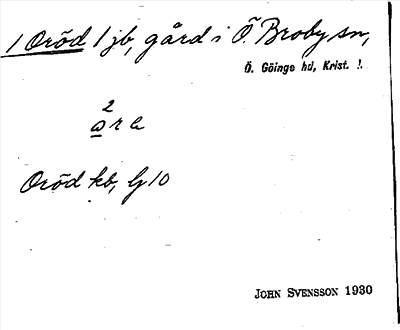 1 Oröd 1 jb, gård i Ö. Broby sn,
Ö. Göinge hd, Krist. l.
2
Oröd kb, G10
JOHN SVENSSON 1930